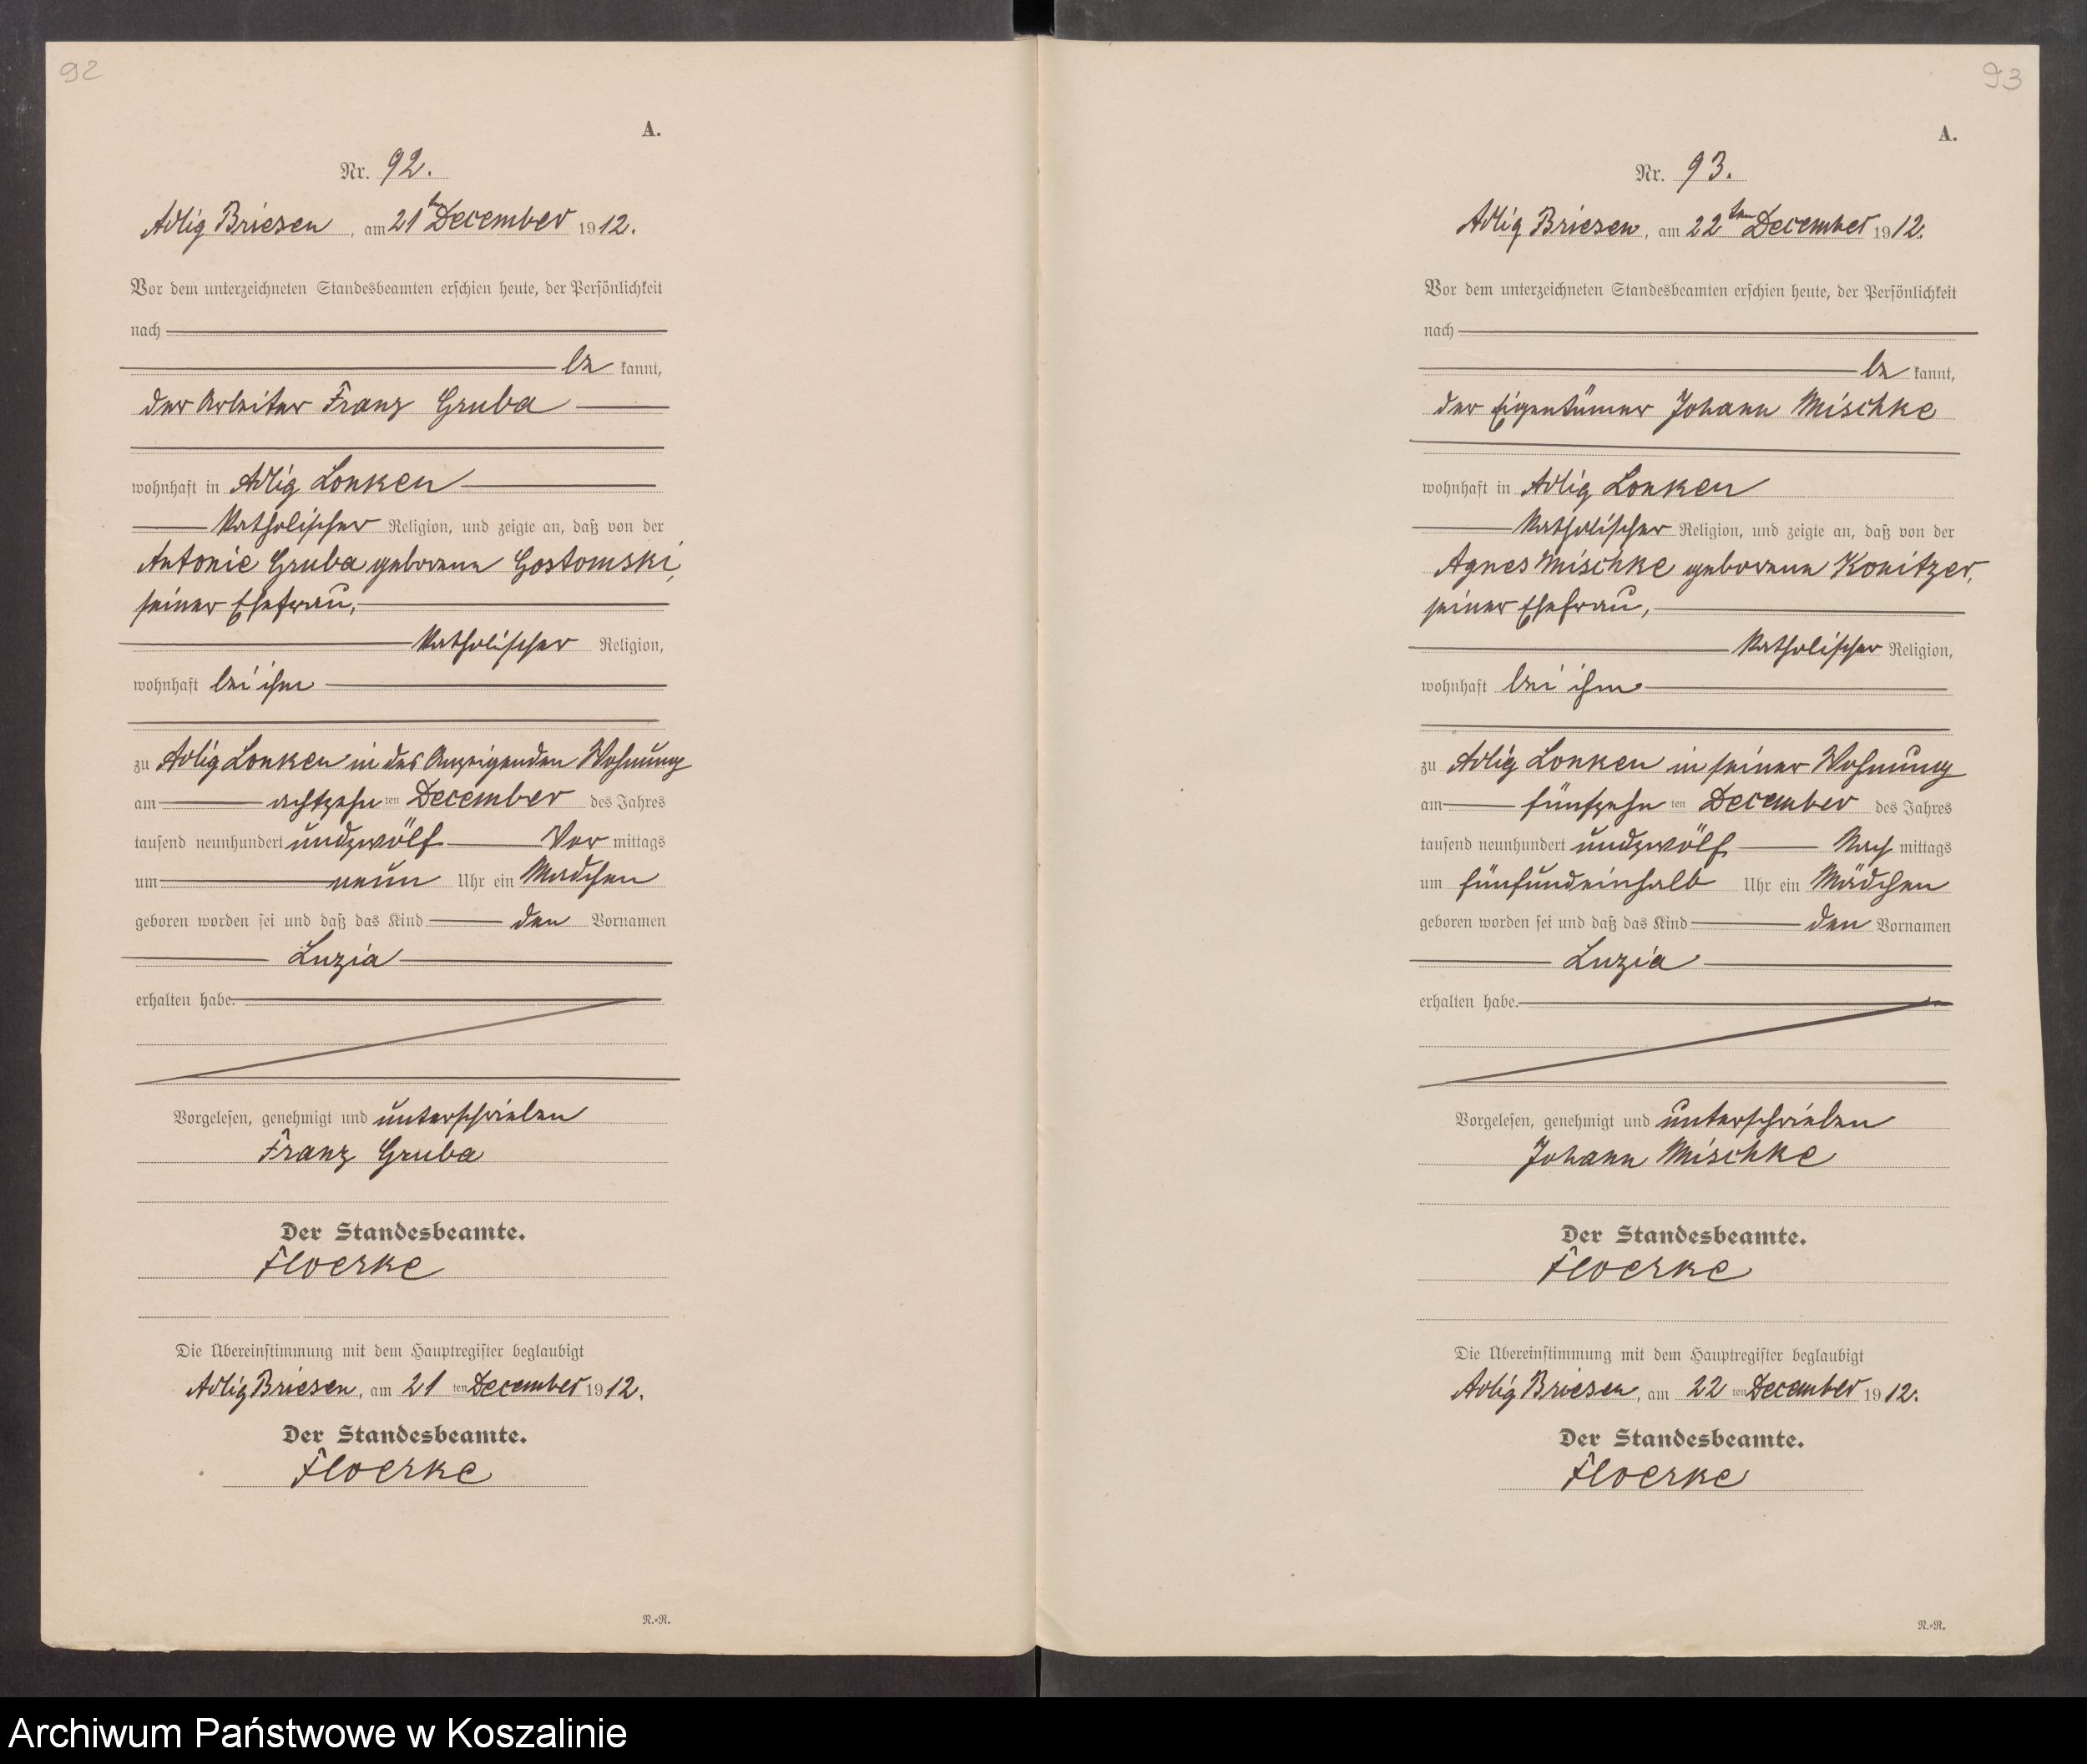 92
A.
Nr. 92.
Adlig Briesen, am 21ten December 1912.
Vor dem unterzeichneten Standesbeamten erschien heute, der Persönlichkeit
nach
be kannt,
der Arbeiter Franz Gruba
wohnhaft in Adlig Lonken
katholischer Religion, und zeigte an, daß von der
Antonie Gruba geborene Gostomski,
seiner Ehefrau,
katholischer Religion,
wohnhaft bei ihm
zu Adlig Lonken in des Anzeigenden Wohnung
am achtzehn ten December des Jahres
tausend neunhundert undzwölf Vor mittags
um neun Uhr ein Mädchen
geboren worden sei und daß das Kind den Vornamen
Luzia
erhalten habe.
Vorgelesen, genehmigt und unterschrieben
Franz Gruba
Der Standesbeamte.
Floerke
Die Übereinstimmung mit dem Hauptregister beglaubigt
Adlig Briesen, am 21 ten December 1912.
Der Standesbeamte.
Floerke
R.=R.
93
A.
Nr. 93.
Adlig Briesen, am 22ten December 1912.
Vor dem unterzeichneten Standesbeamten erschien heute, der Persönlichkeit
nach
be kannt,
der Eigentümer Johann Mischke
wohnhaft in Adlig Lonken
katholischer Religion, und zeigte an, daß von der
Agnes Mischke geborene Konitzer,
seiner Ehefrau,
katholischer Religion,
wohnhaft bei ihm
zu Adlig Lonken in seiner Wohnung
am fünfzehn ten December des Jahres
tausend neunhundert undzwölf Nach mittags
um fünfundeinhalb Uhr ein Mädchen
geboren worden sei und daß das Kind den Vornamen
Luzia
erhalten habe.
Vorgelesen, genehmigt und unterschrieben
Johann Mischke
Der Standesbeamte.
Floerke
Die Übereinstimmung mit dem Hauptregister beglaubigt
Adlig Briesen, am 22 ten December 1912.
Der Standesbeamte.
Floerke
R.=R.
Archiwum Państwowe w Koszalinie